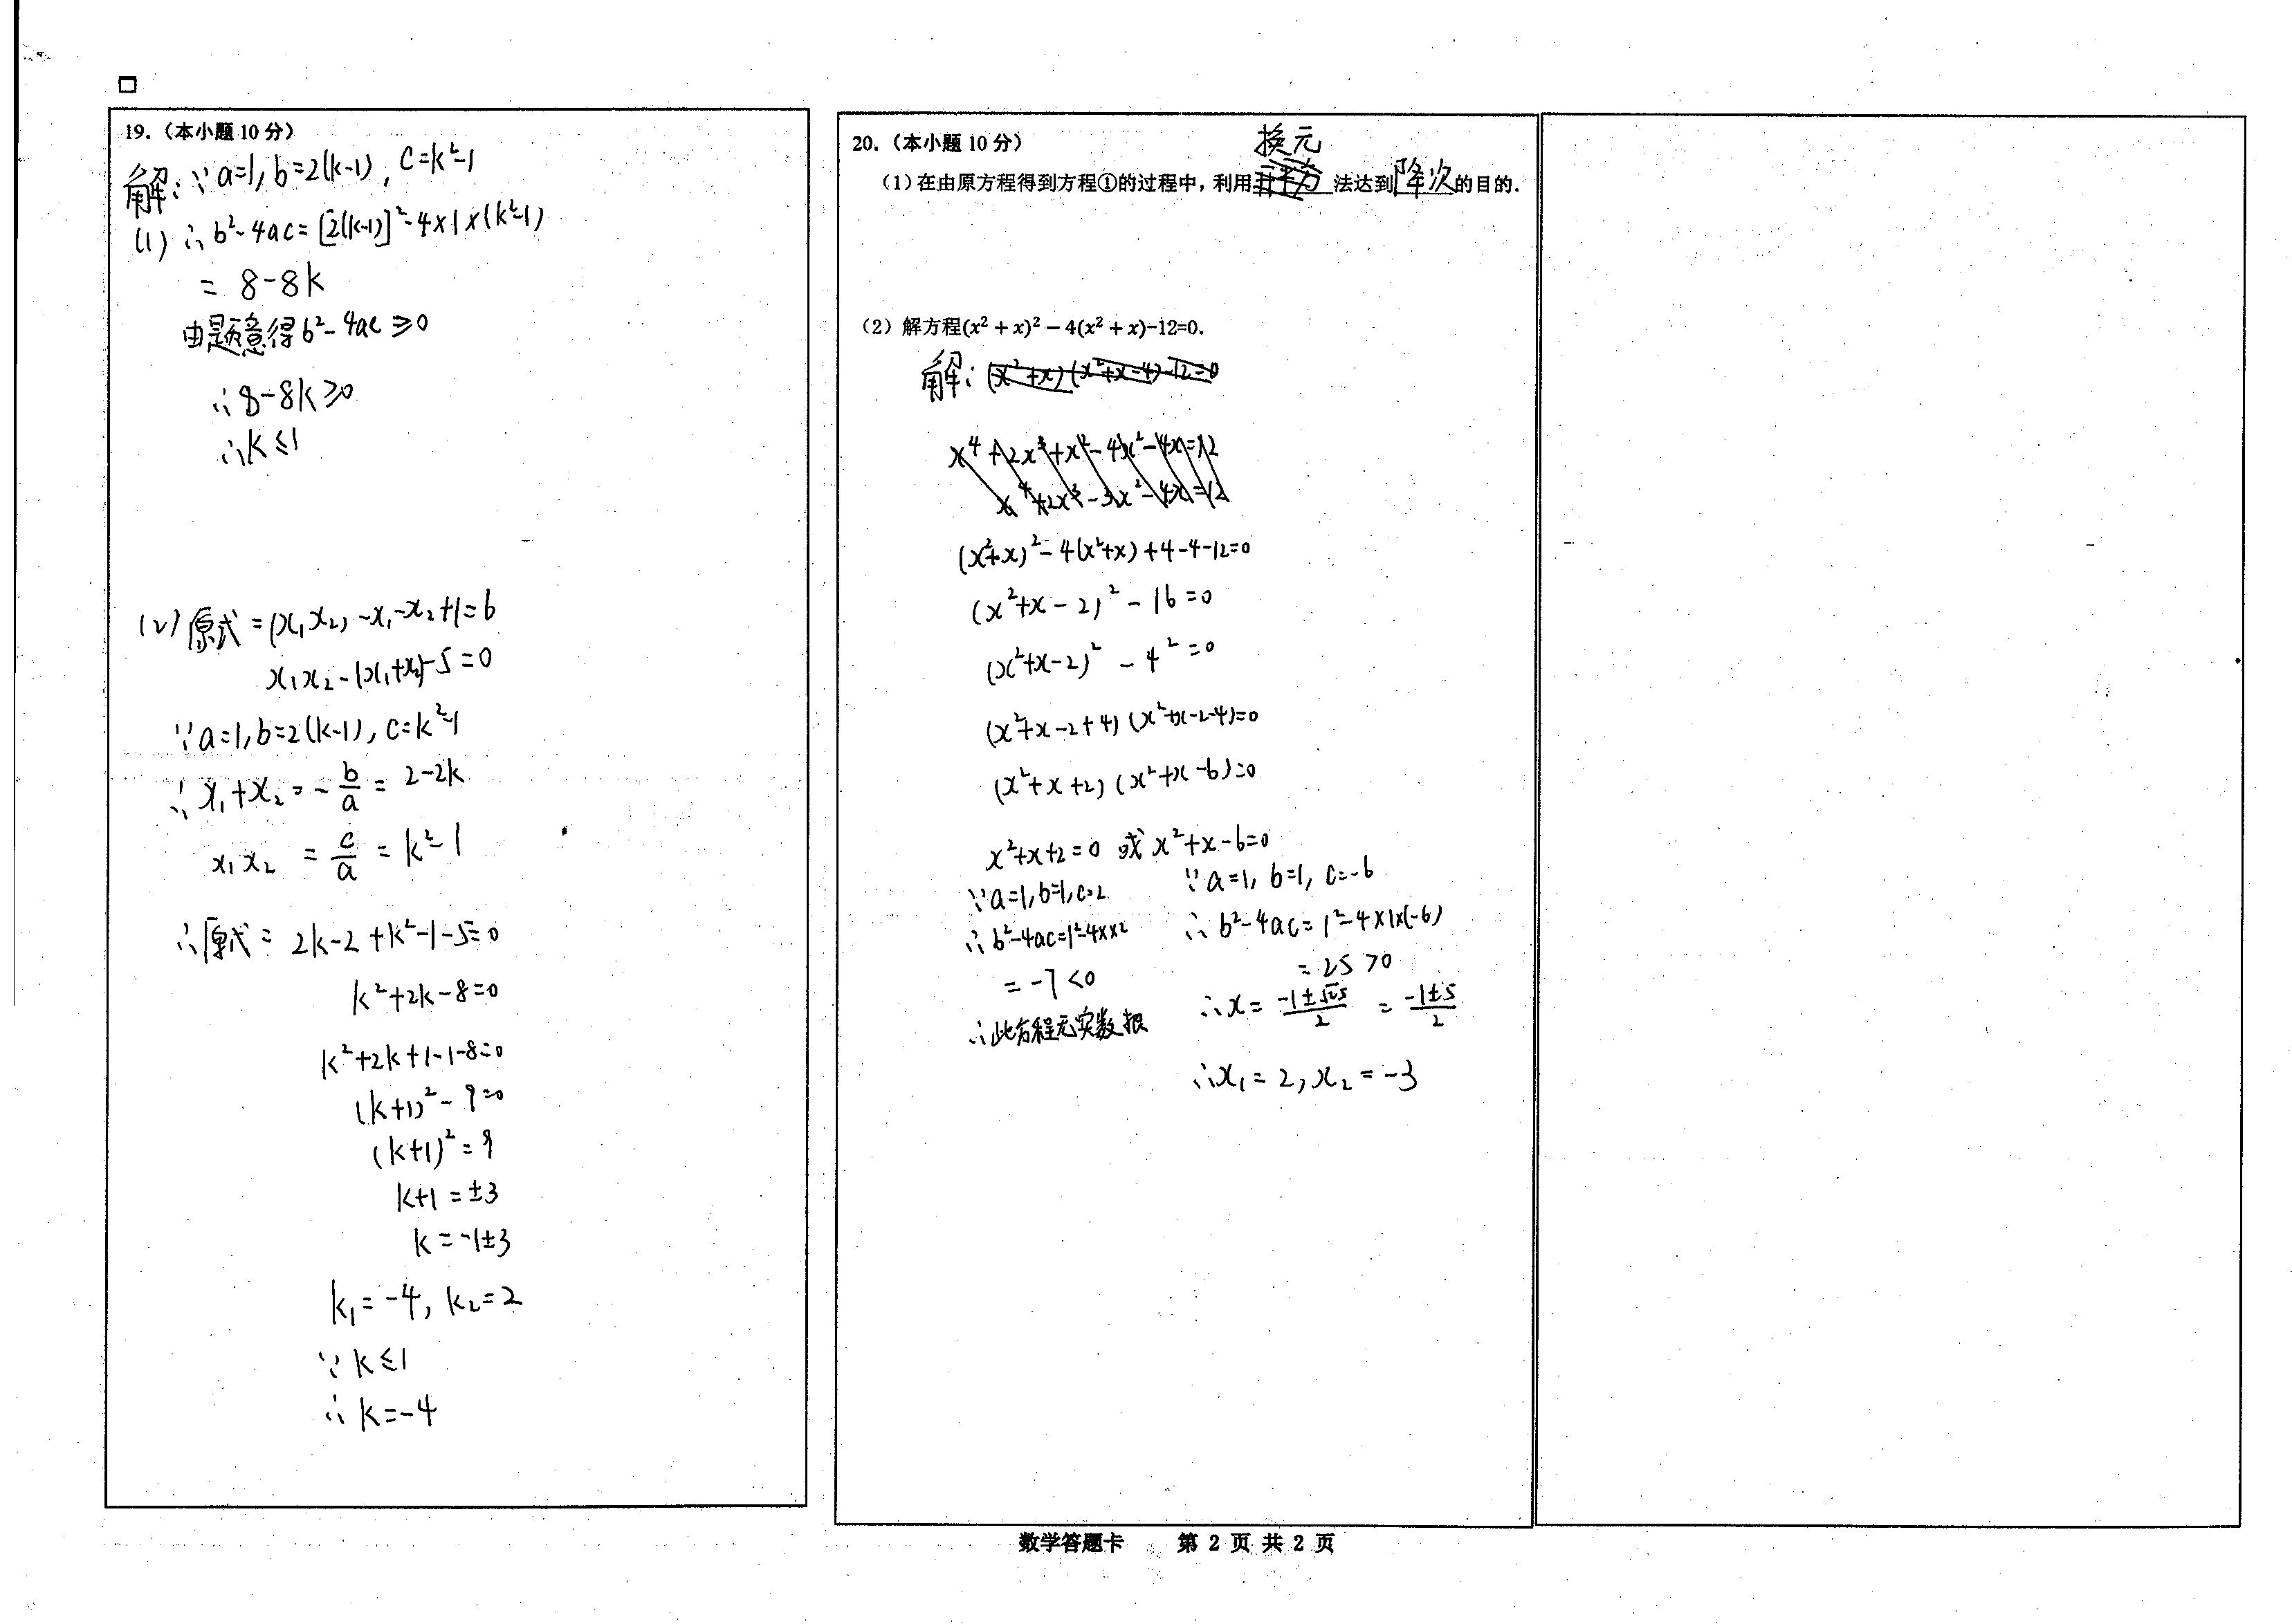 19.（本小题 10 分）
解：∵a=1, b=2(k-1), c=k²-1
(1) ∴b²-4ac=[2(k-1)]²-4×1×(k²-1)
= 8-8k
由题意得b²-4ac≥0
∴8-8k≥0
∴k≤1
(2)原式=(x₁x₂)-x₁-x₂+1=6
x₁x₂-(x₁+x₂)-5=0
∵a=1, b=2(k-1), c=k²-1
∴x₁+x₂=-b/a=2-2k
x₁x₂=c/a=k²-1
∴原式=2k-2+k²-1-5=0
k²+2k-8=0
k²+2k+1-1-8=0
(k+1)²-9=0
(k+1)²=9
k+1=±3
k=-1±3
k₁=-4, k₂=2
∵k≤1
∴k=-4
20.（本小题 10 分）
换元
（1）在由原方程得到方程①的过程中，利用 法达到降次的目的.
（2）解方程(x² + x)² − 4(x² + x)−12=0.
解：(x²+x)(x²+x-4)-12=0
x⁴+2x³+x²-4x²-4x=12
x⁴+2x³-3x²-4x=12
(x²+x)²-4(x²+x)+4-4-12=0
(x²+x-2)²-16=0
(x²+x-2)²-4²=0
(x²+x-2+4)(x²+x-2-4)=0
(x²+x+2)(x²+x-6)=0
x²+x+2=0 或 x²+x-6=0
∵a=1, b=1, c=2 ∵a=1, b=1, c=-6
∴b²-4ac=1²-4×1×2 ∴b²-4ac=1²-4×1×(-6)
=-7<0 =25>0
∴此方程无实数根 ∴x=(-1±√25)/2=(-1±5)/2
∴x₁=2, x₂=-3
数学答题卡 第 2 页 共 2 页